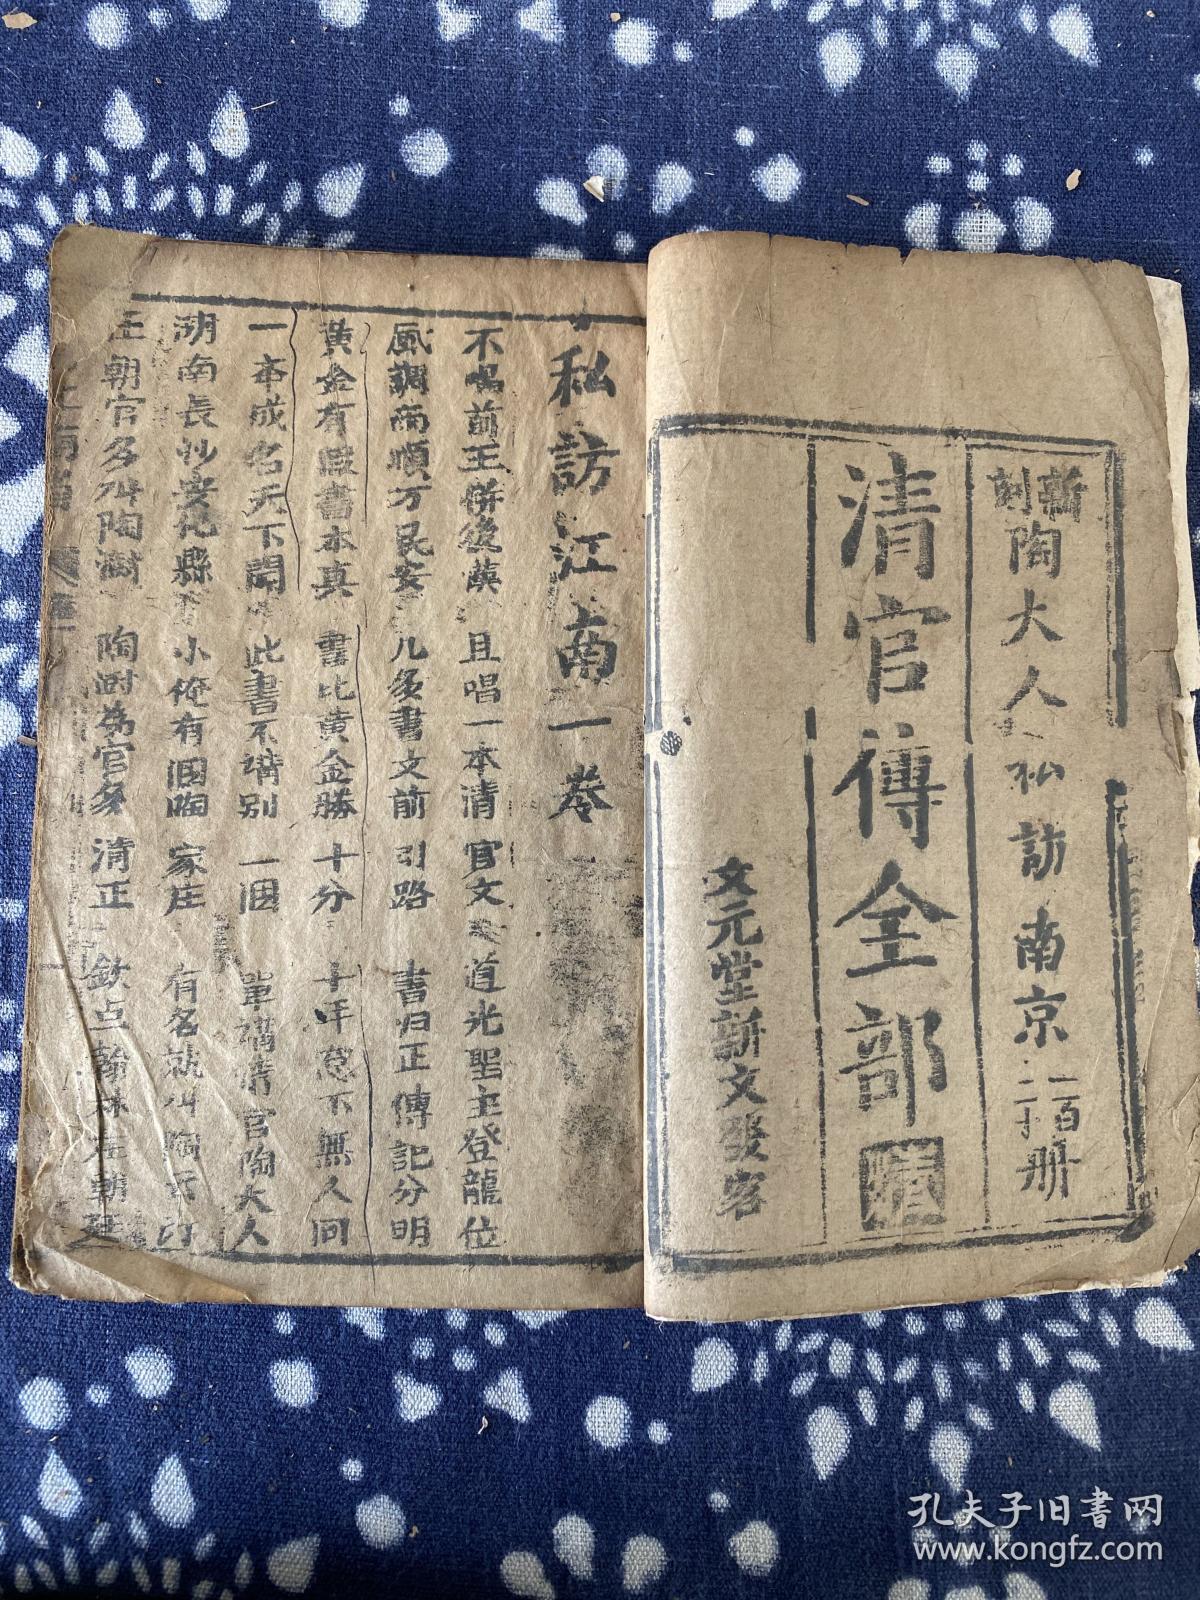 新刻陶大人私訪南京一百二十册
清官傳全部
文元堂新文發客
私訪江南一卷
不唱前王併後漢 且唱一本清官文 道光聖主登龍位
風調雨順万民安 几多書文前引路 書归正傳記分明
黄金有假書本真 書比黄金勝十分 十年窓下無人问
一本成名天下聞 此書不講別一個 單講清官陶大人
湖南長沙安化縣 小俺有個陶家庄 有名就叫陶
在朝官多叫陶澍 陶澍為官多清正 欽点翰林在朝廷
孔夫子旧書网
www.kongfz.com